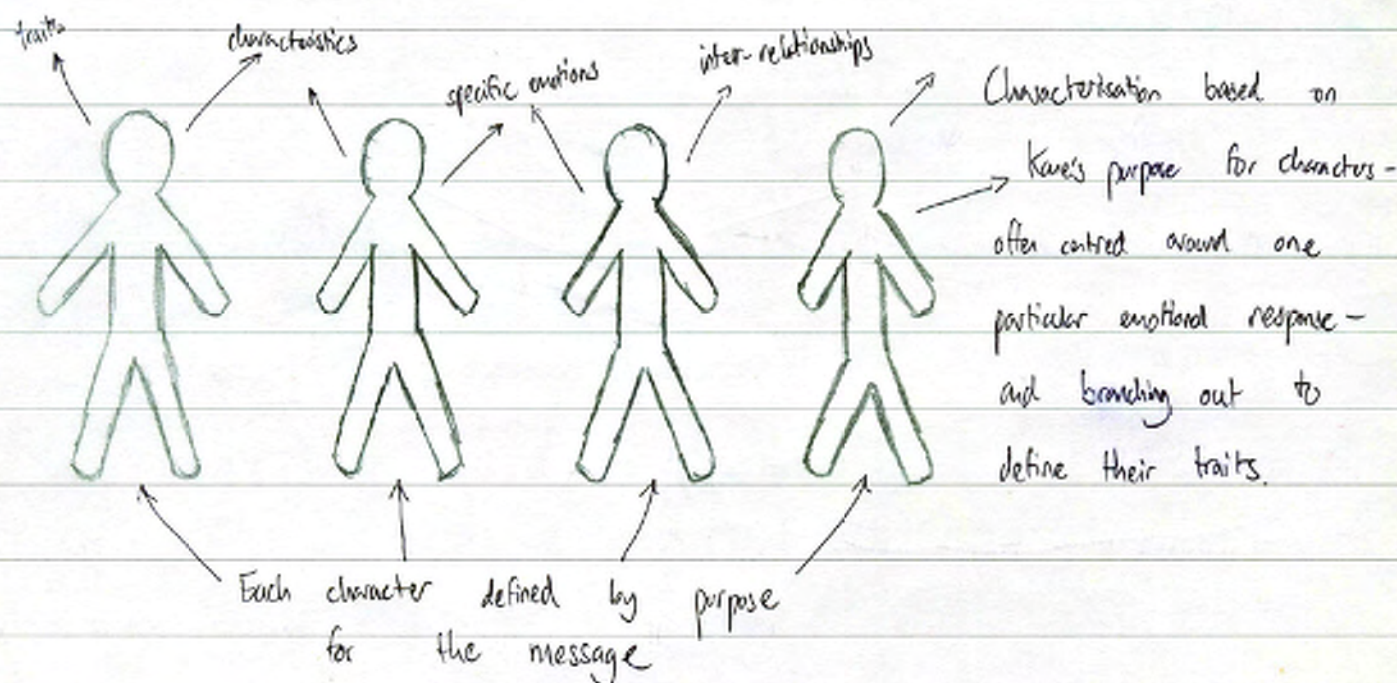 traits
characteristics
specific emotions
inter-relationships
Characterisation based on
Kane's purpose for characters -
often centred around one
particular emotional response -
and branching out to
define their traits.
Each character defined by purpose
for the message